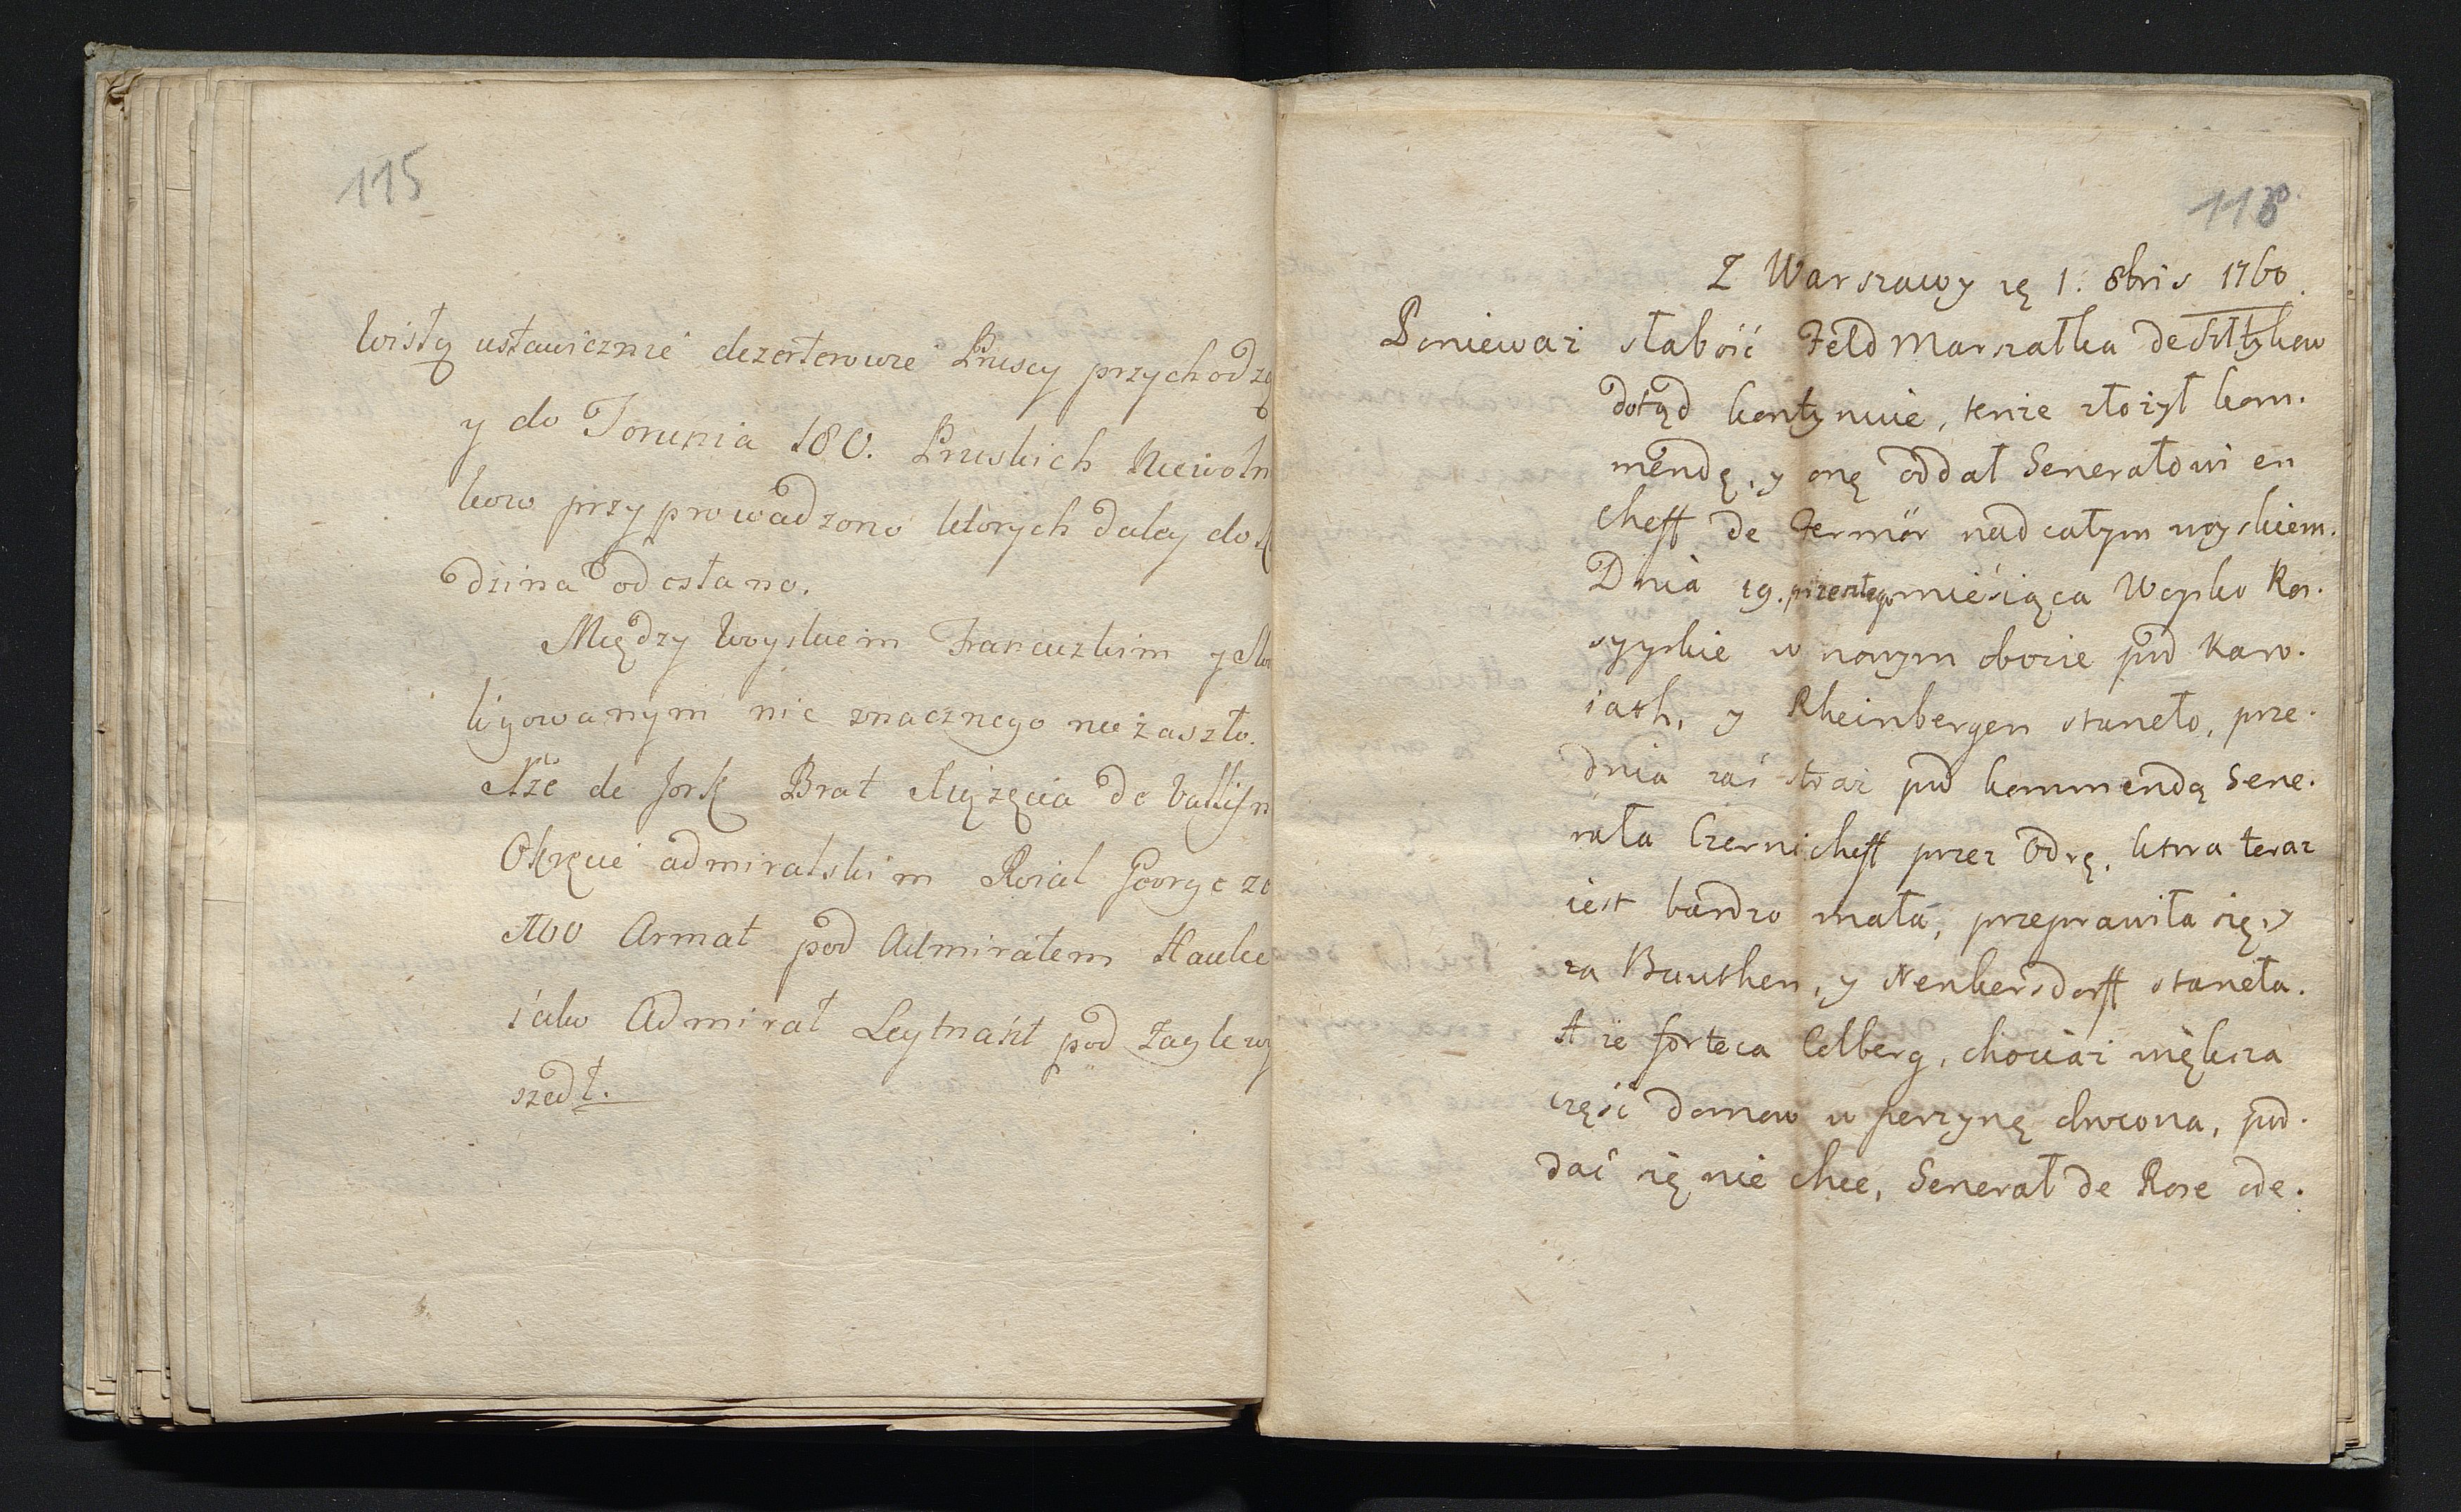 115
Wisłą ustawicznie dezerterowie Pruscy przychodzą
y do Torunia 180. Pruskich Niewoln
kow przyprowadzono ktorych daley do
dzina odesłano.
Między Woyskiem Francuzkim y
ligowanym nic znacznego nie zaszło.
Xże de Jork Brat Xiążęcia de Vallis n
Okręcie admiralskim Roial George zo
100 Armat pod Admirałem Hauke
iako Admirał Leytnant pod żagle wy
szedł.
118
Z Warszawy 1. 8bris 1760.
Ponieważ słabość Feld Marszałka de Sołtykow
dotąd kontynuie, tenże złożył kom.
mendę, y onę oddał Generałowi en
cheff de Fermor nad całym woyskiem.
Dnia 19. przeszłego miesiąca Woysko Ros.
syyskie w nowym obozie pod Karo.
iath, y Rheinbergen staneło, prze.
dnia zaś straż pod kommendą Gene.
rała Czernicheff przez Odrę, ktora teraz
iest bardzo mała, przeprawiła się, y
za Beuthen, y Nenkersdorff staneła.
A że forteca Colberg, chociaż większa
część domow w perzynę obrocona, pod.
dać się nie chce, Generał de Rose ode.